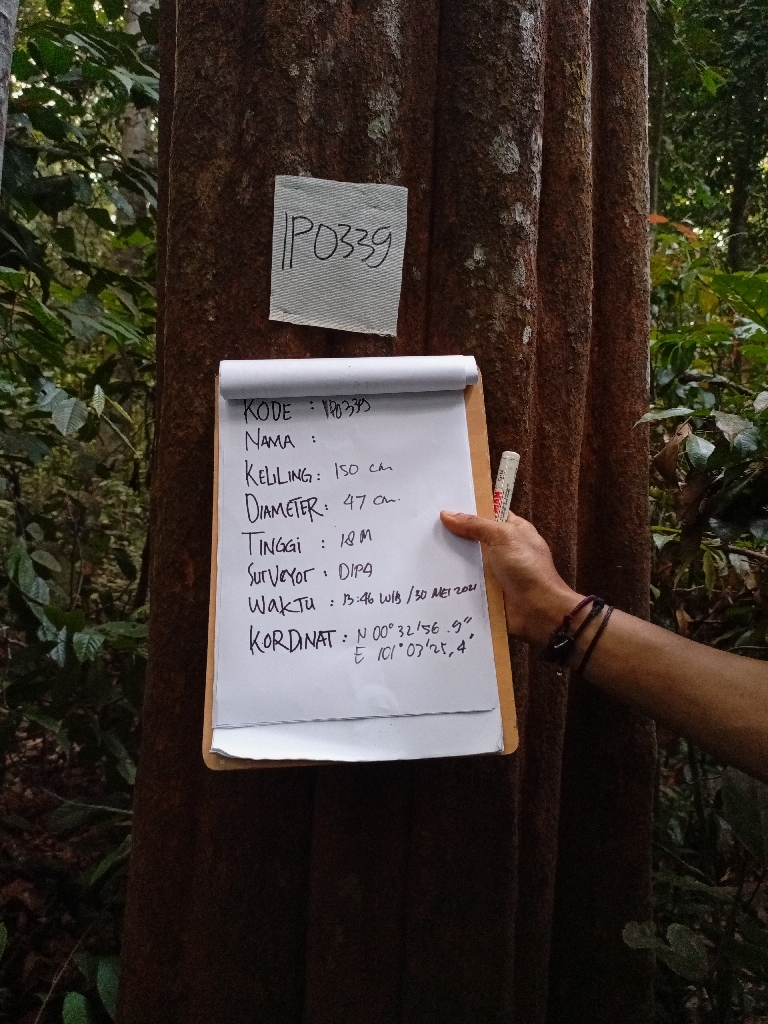 IP0339
KODE : IP0339
NAMA :
KELILING : 150 cm
DIAMETER : 47 cm.
TINGGI : 18 M
SURVEYOR : DIPA
WAKTU : 13:46 WIB / 30 MEI 2021
KORDINAT : N 00° 32' 56 .9"
E 101° 03' 25,4"